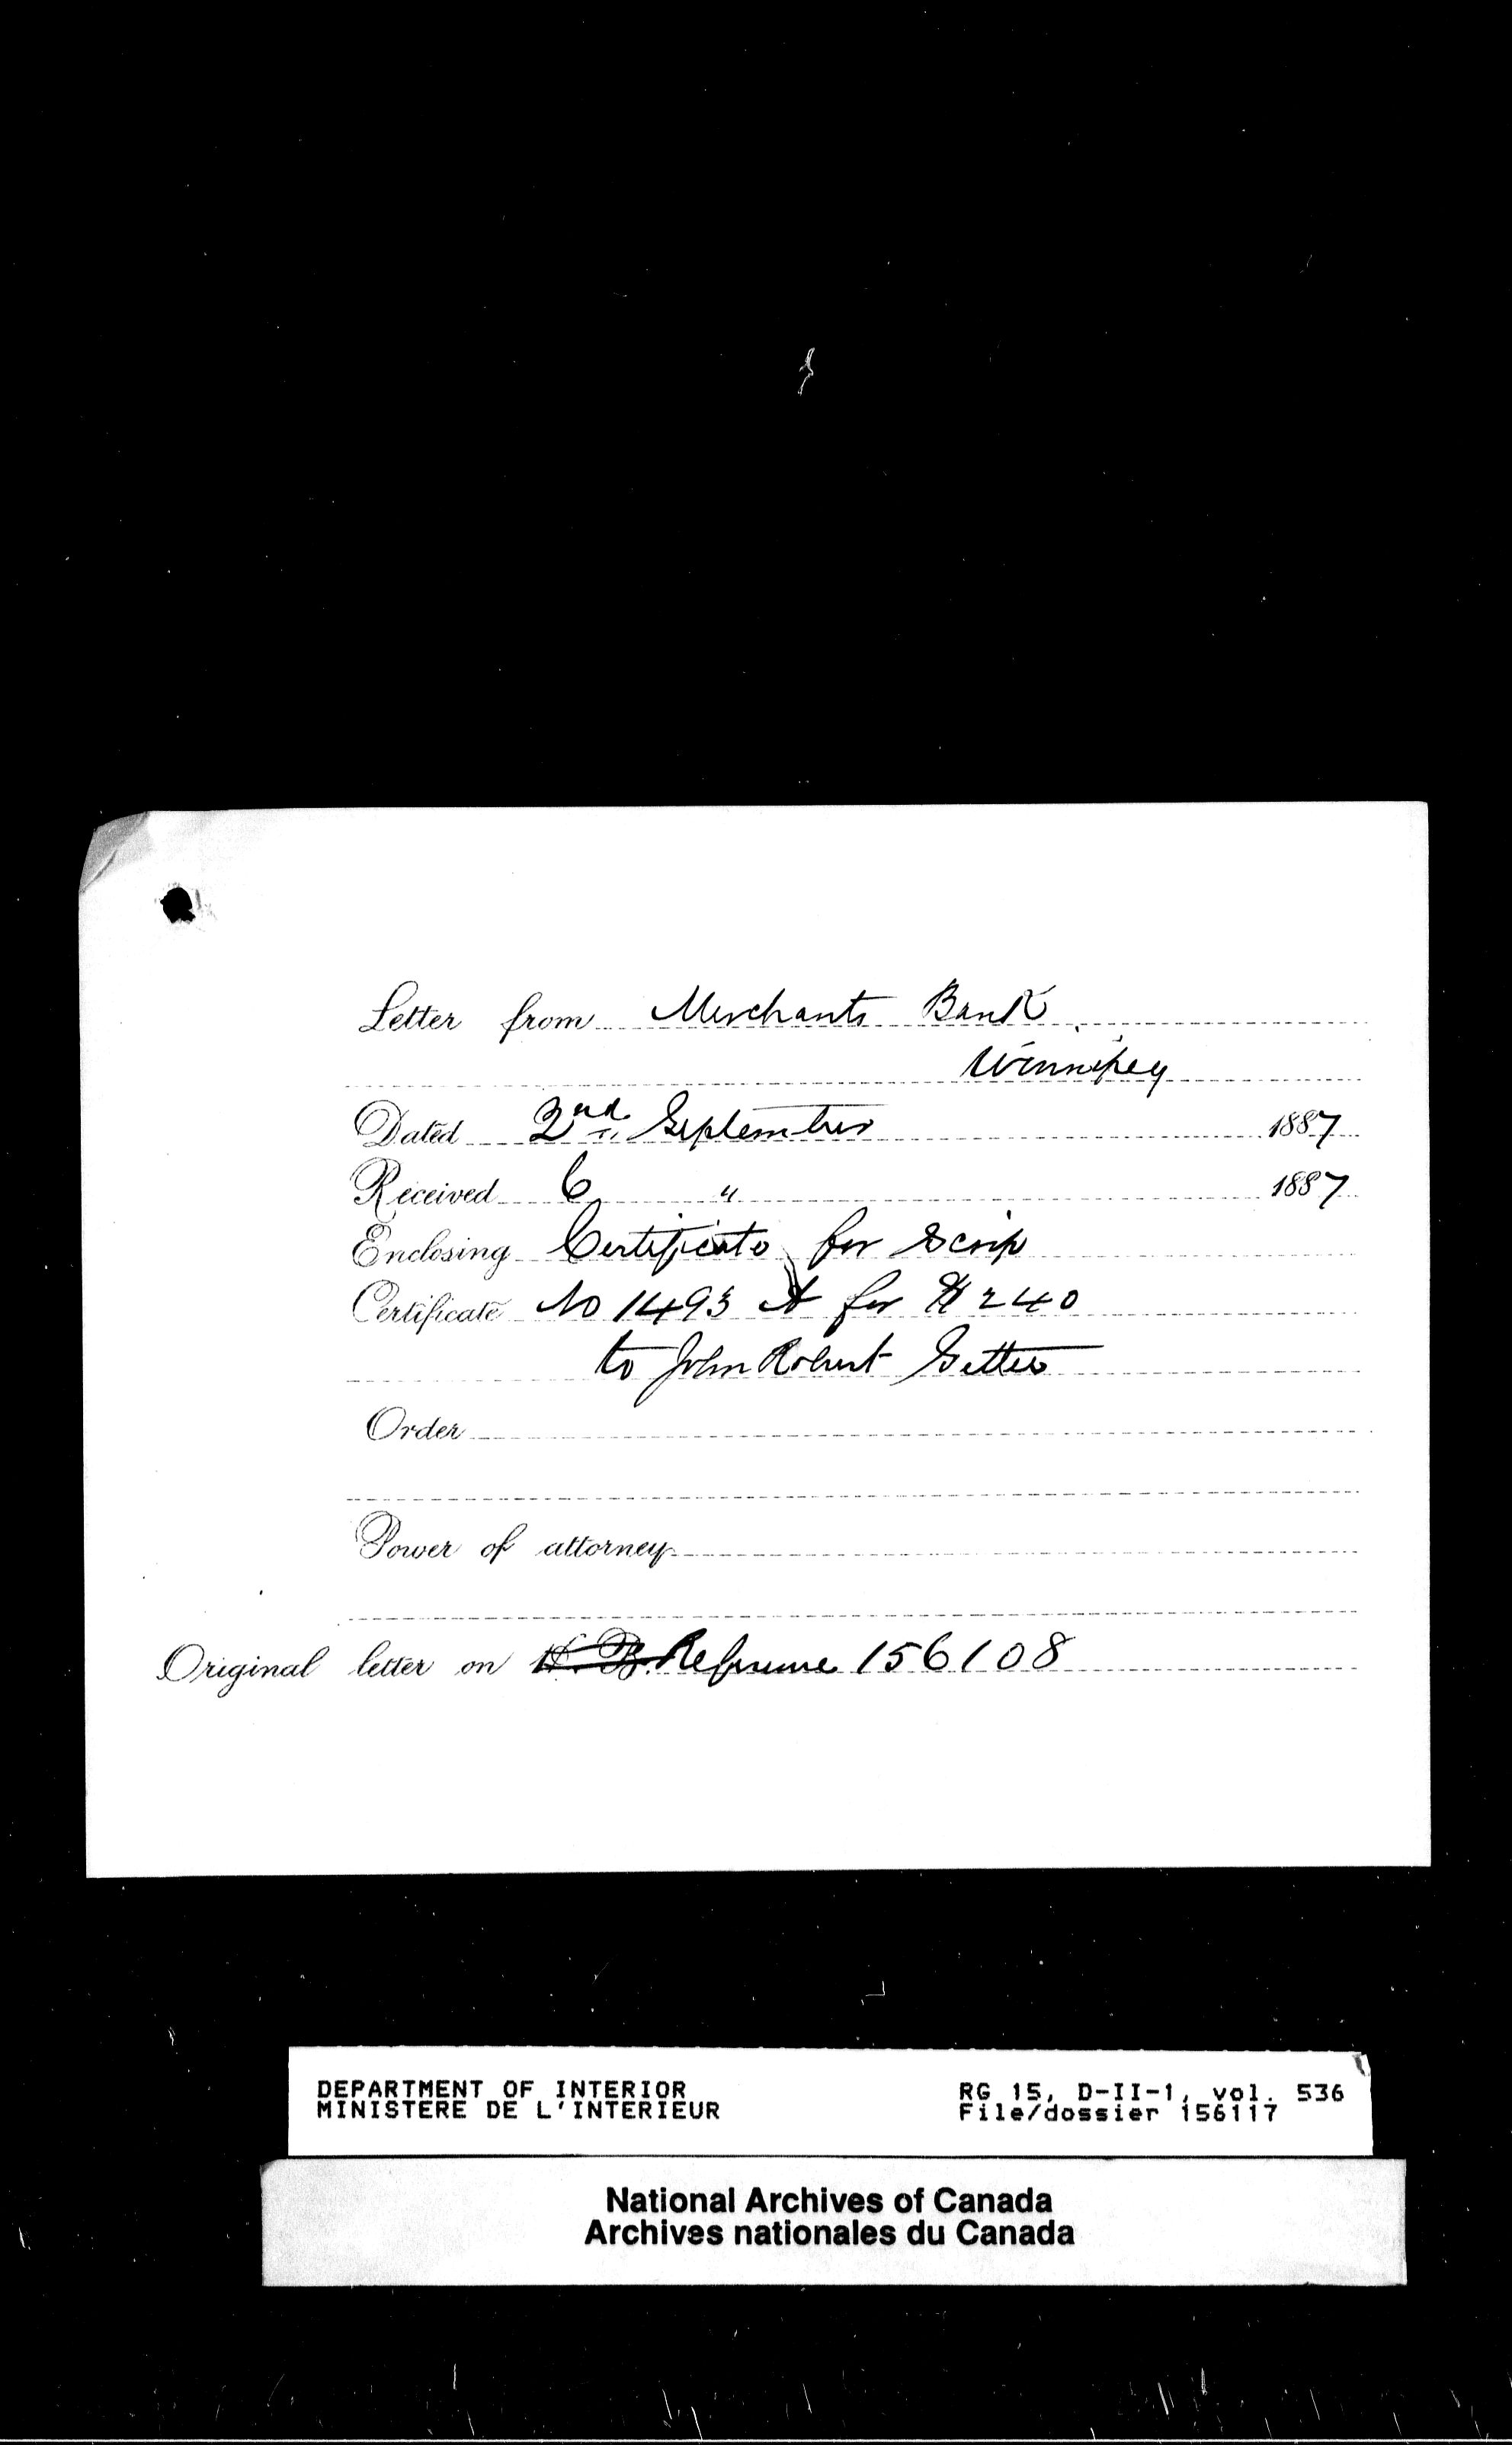 Letter from Merchants Bank
Winnipeg
Dated 2nd September 1887
Received 6 " 1887
Enclosing Certificate for Scrip
Certificate No 1493 A for $240
to John Robert Setter
Order
Power of attorney
Original letter on H. B. Reference 156108
DEPARTMENT OF INTERIOR
MINISTERE DE L'INTERIEUR
RG 15, D-II-1, vol. 536
File/dossier 156117
National Archives of Canada
Archives nationales du Canada